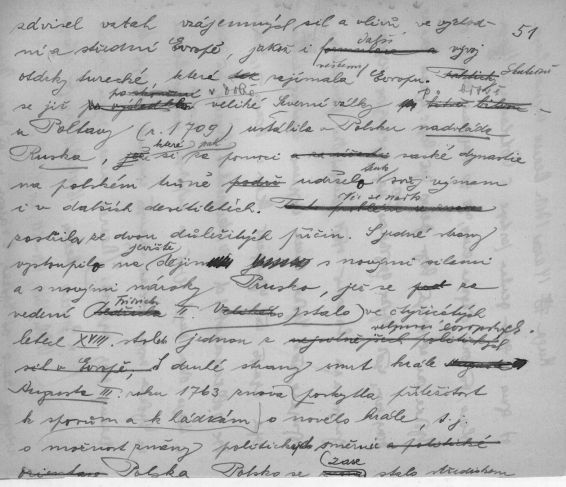 51
závisel vztah vzájemných sil a vlivů ve východ-
ní a střední Evropě, jakož i další vývoj
otázky turecké, které zajímala Evropu. Skutečně
se již v době veliké severní války
u Poltavy (r. 1709) ustálila v Polsku nadvláda
Ruska, které si pak za pomoci saské dynastie
na polském trůně udrželo svůj význam
i v dalších desítiletích.
ze dvou důležitých příčin. S jedné strany
vystoupilo na jeviště dějin s novými silami
a s novými nároky Prusko, jež se za
vedení Fridricha II. stalo ve čtyřicátých
letech XVIII. stol. jednou z velmocí evropských.
S druhé strany smrt krále
Augusta III. roku 1763 znova poskytla příležitost
k sporům a k hádkám o nového krále, t. j.
o možnost změny politického směru
Polska Polsko se zase stalo střediskem